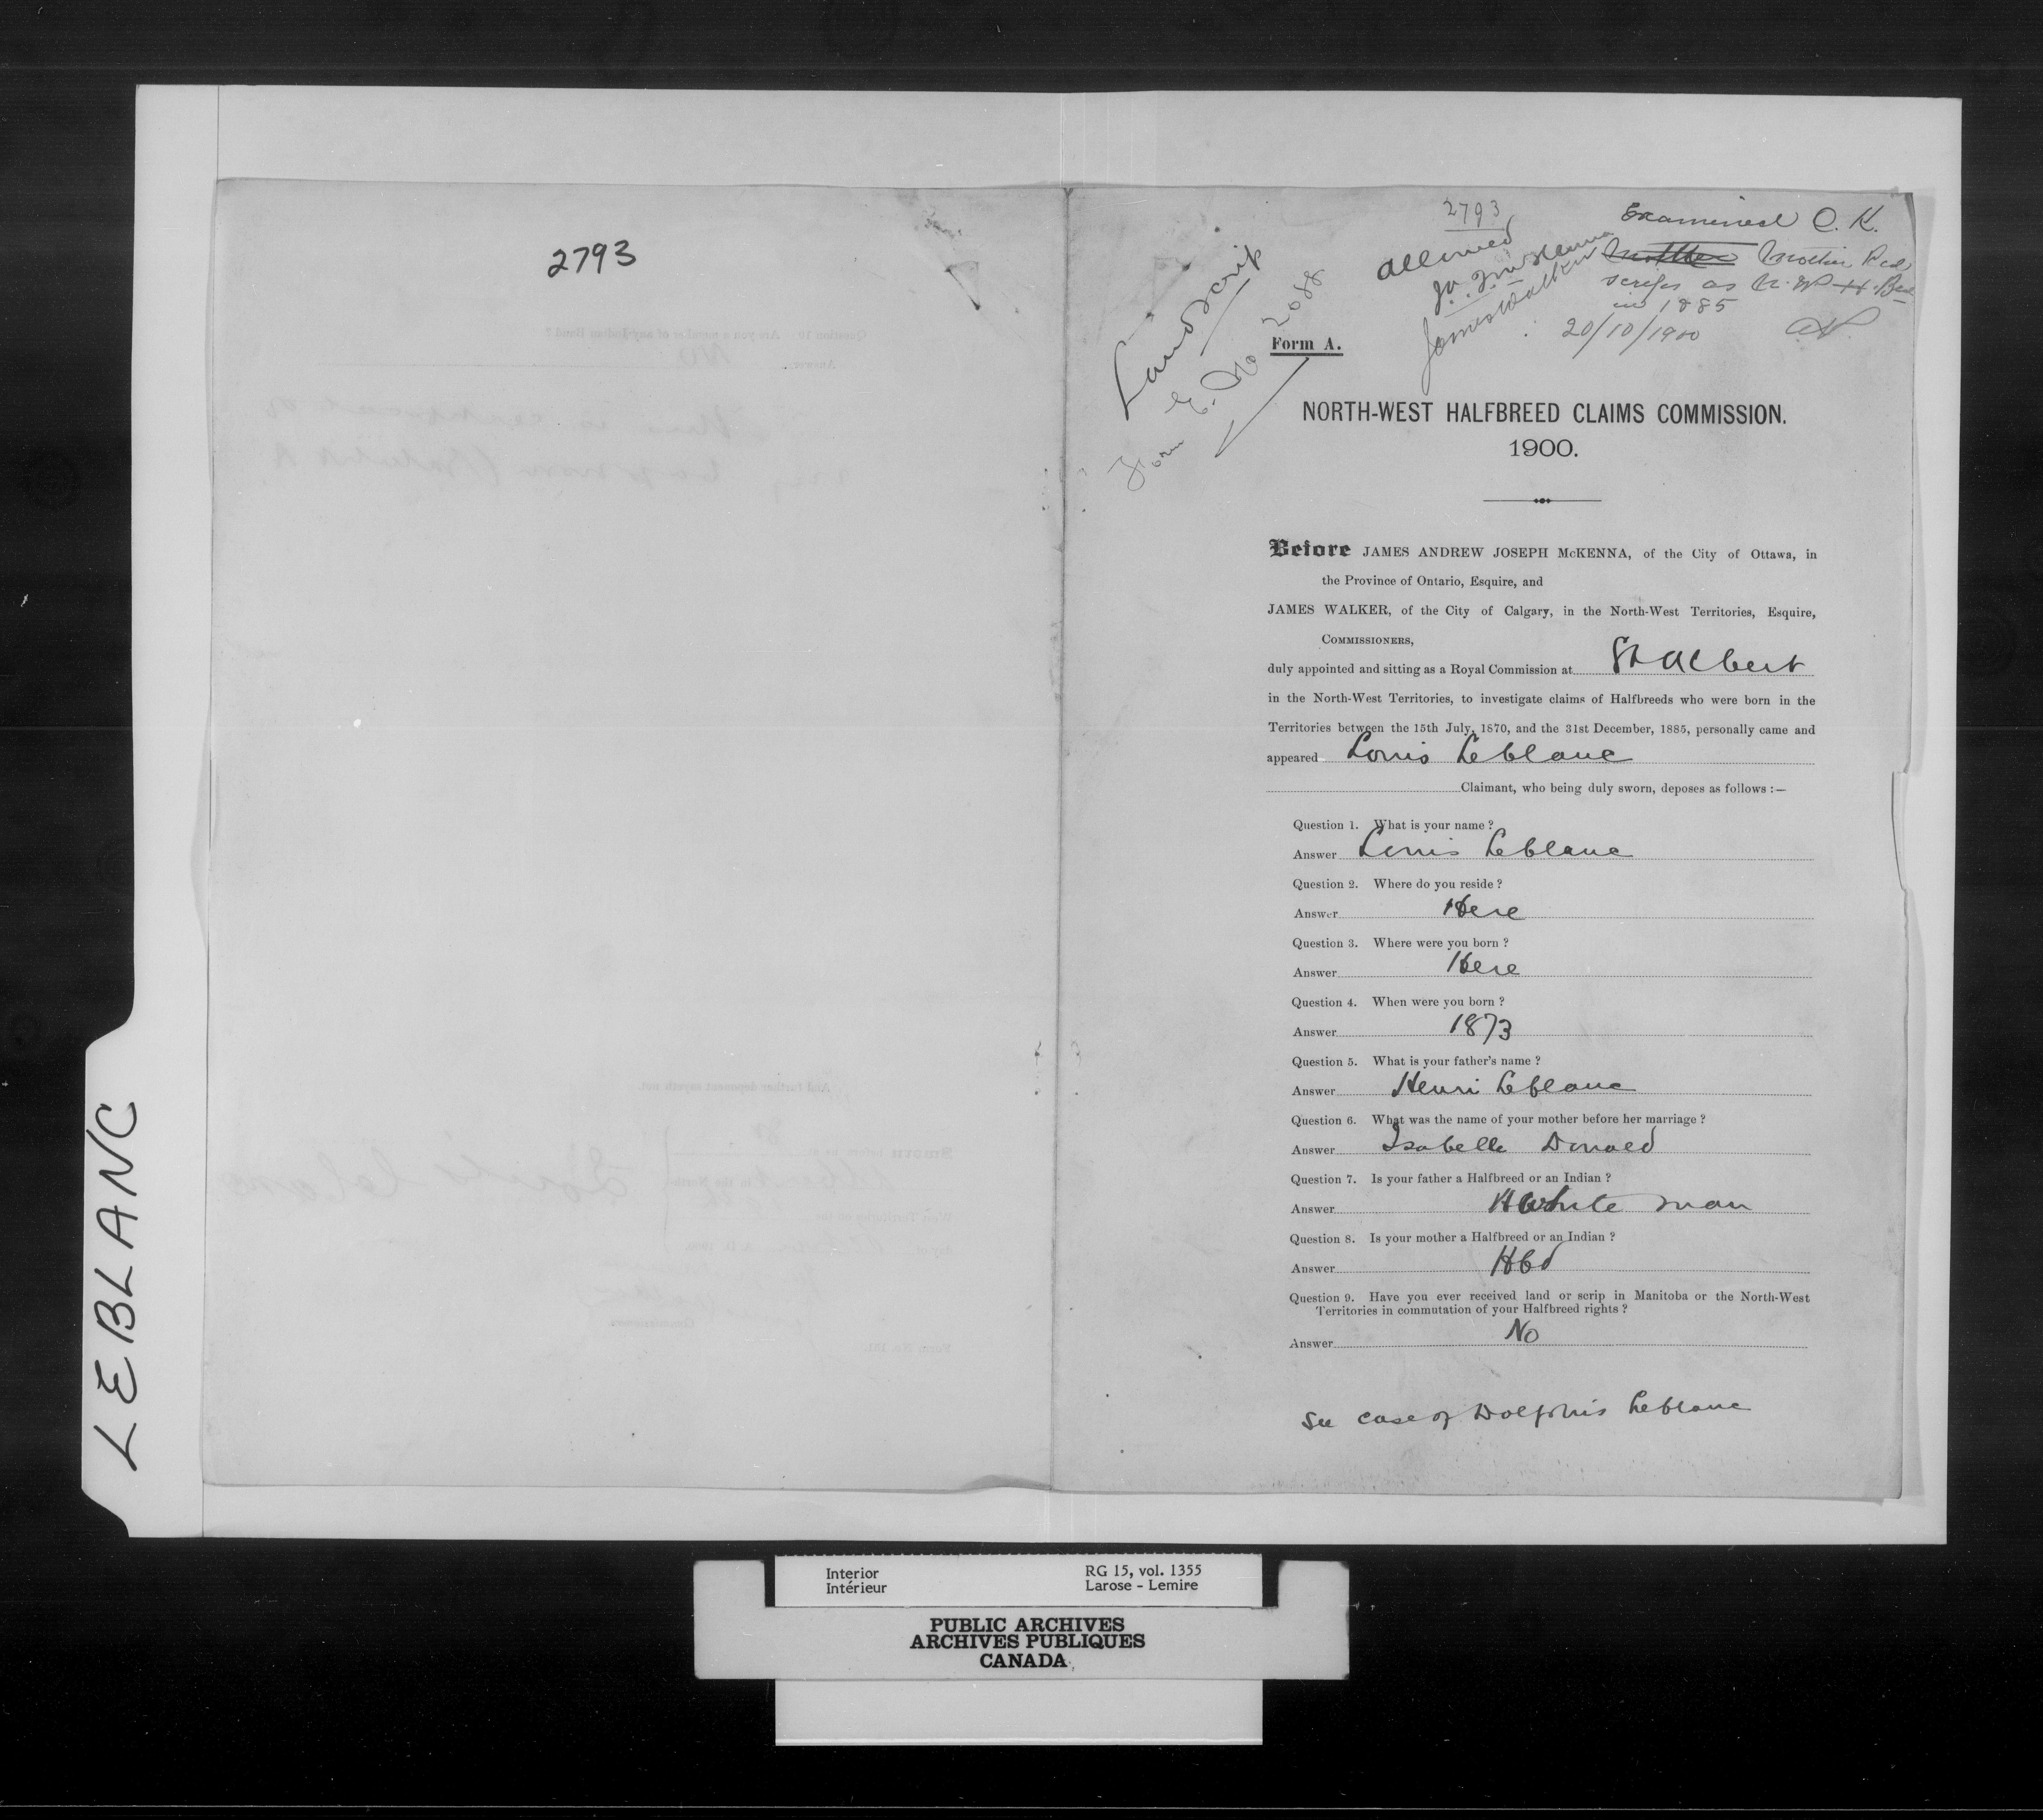 LEBLANC
2793
2793
Allowed
James Walker
Land scrip
Form E. No 2088
Examined O.K.
Mother
Mother Recd
scrip as N.W. H. Bd
in 1885
20/10/1900
Form A.
NORTH-WEST HALFBREED CLAIMS COMMISSION.
1900.
Before JAMES ANDREW JOSEPH McKENNA, of the City of Ottawa, in
the Province of Ontario, Esquire, and
JAMES WALKER, of the City of Calgary, in the North-West Territories, Esquire,
COMMISSIONERS,
duly appointed and sitting as a Royal Commission at St Albert
in the North-West Territories, to investigate claims of Halfbreeds who were born in the
Territories between the 15th July, 1870, and the 31st December, 1885, personally came and
appeared Louis Leblanc
Claimant, who being duly sworn, deposes as follows :—
Question 1. What is your name ?
Answer Louis Leblanc
Question 2. Where do you reside ?
Answer Here
Question 3. Where were you born ?
Answer Here
Question 4. When were you born ?
Answer 1873
Question 5. What is your father's name ?
Answer Henri Leblanc
Question 6. What was the name of your mother before her marriage ?
Answer Isabelle Donald
Question 7. Is your father a Halfbreed or an Indian ?
Answer White man
Question 8. Is your mother a Halfbreed or an Indian ?
Answer Hbd
Question 9. Have you ever received land or scrip in Manitoba or the North-West
Territories in commutation of your Halfbreed rights ?
Answer No
See case of Dolphis Leblanc
Interior RG 15, vol. 1355
Intérieur Larose - Lemire
PUBLIC ARCHIVES
ARCHIVES PUBLIQUES
CANADA